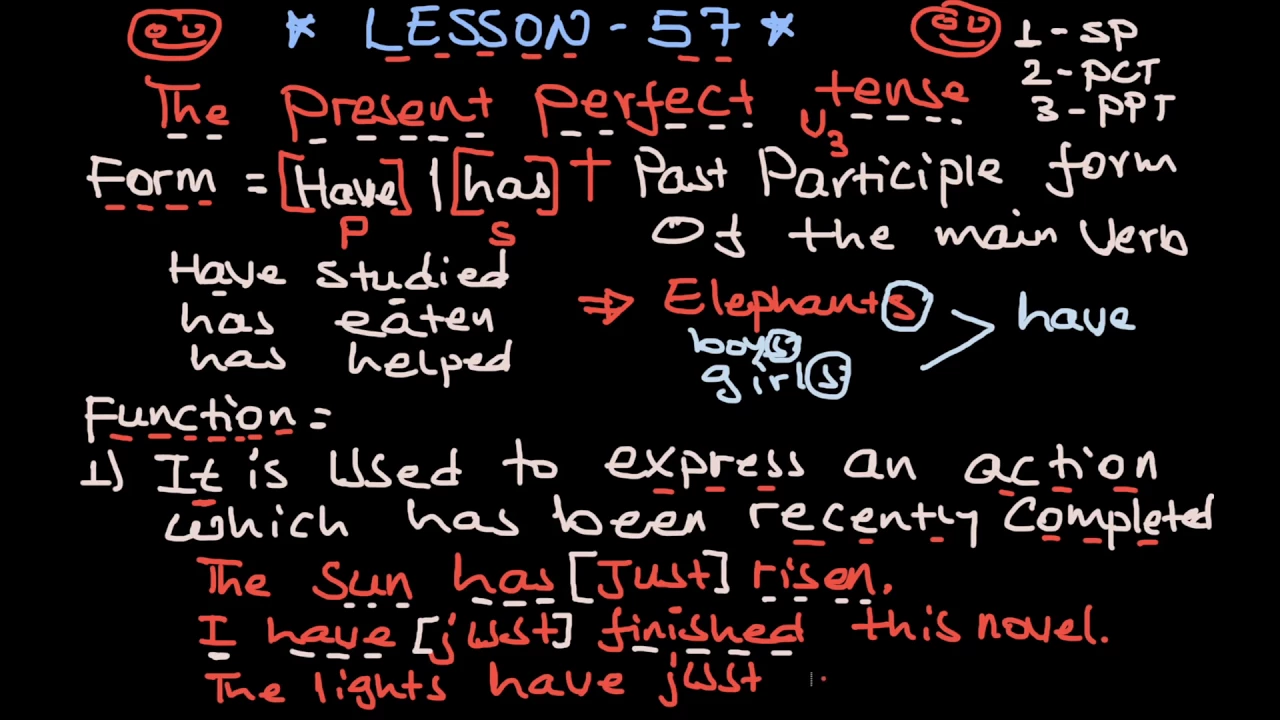 * LESSON - 57 *
1 - SP
2 - PCT
3 - PPT
The present perfect tense
V3
Form = [Have] | [has] + Past Participle form
P S
Of the main Verb
Have studied
has eaten
has helped
⇒ Elephants
boys
girls
> have
Function =
1) It is Used to express an action
which has been recently Completed
The Sun has [Just] risen.
I have [just] finished this novel.
The lights have just